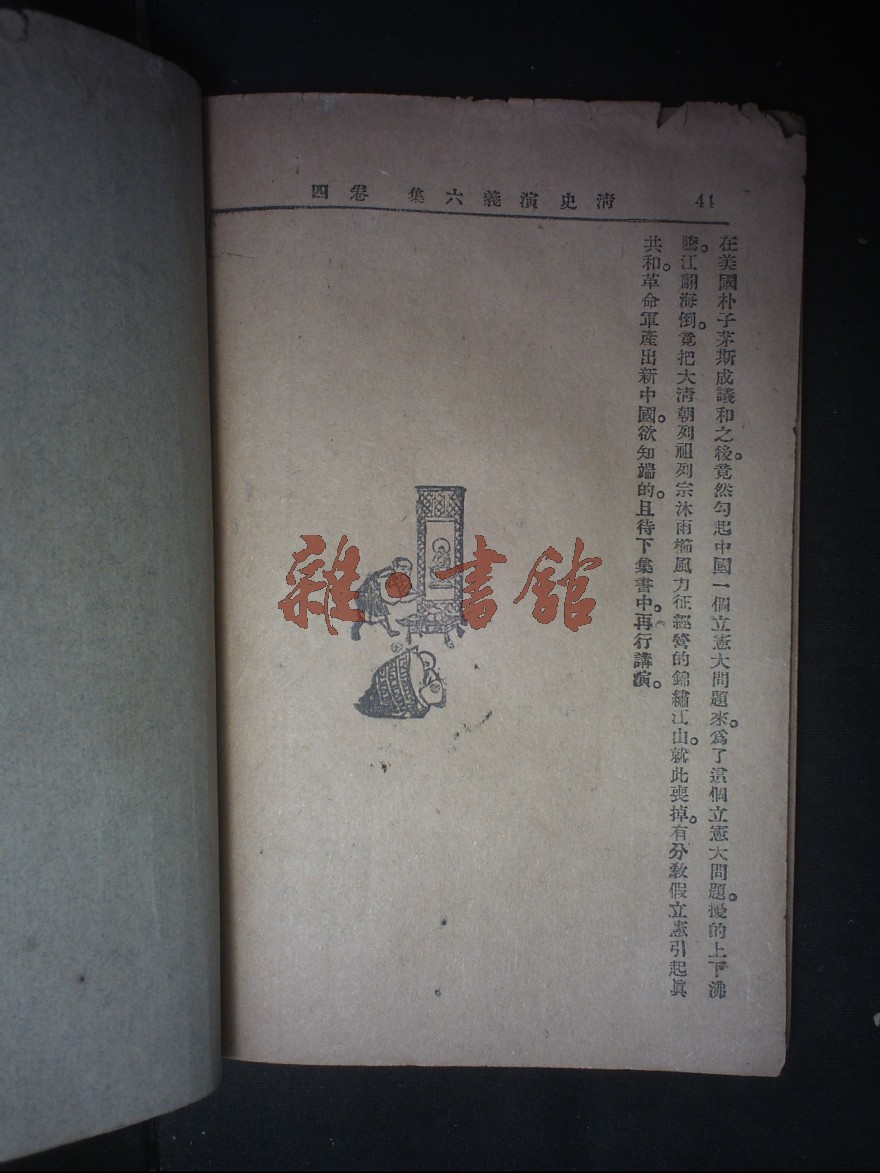 清史演義六集 卷四
44
在美國朴子茅斯成議和之後。竟然勾起中國一個立憲大問題來。爲了這個立憲大問題。擾的上下沸
騰。江翻海倒。竟把大清朝列祖列宗沐雨櫛風力征經營的錦繡江山。就此喪掉。有分敎假立憲引起眞
共和。革命軍產出新中國。欲知端的。且待下集書中。再行講演。
雜·書館